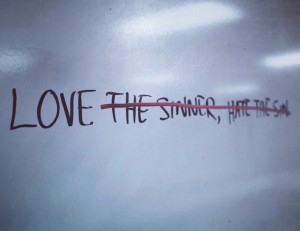 LOVE THE SINNER, HATE THE SIN.